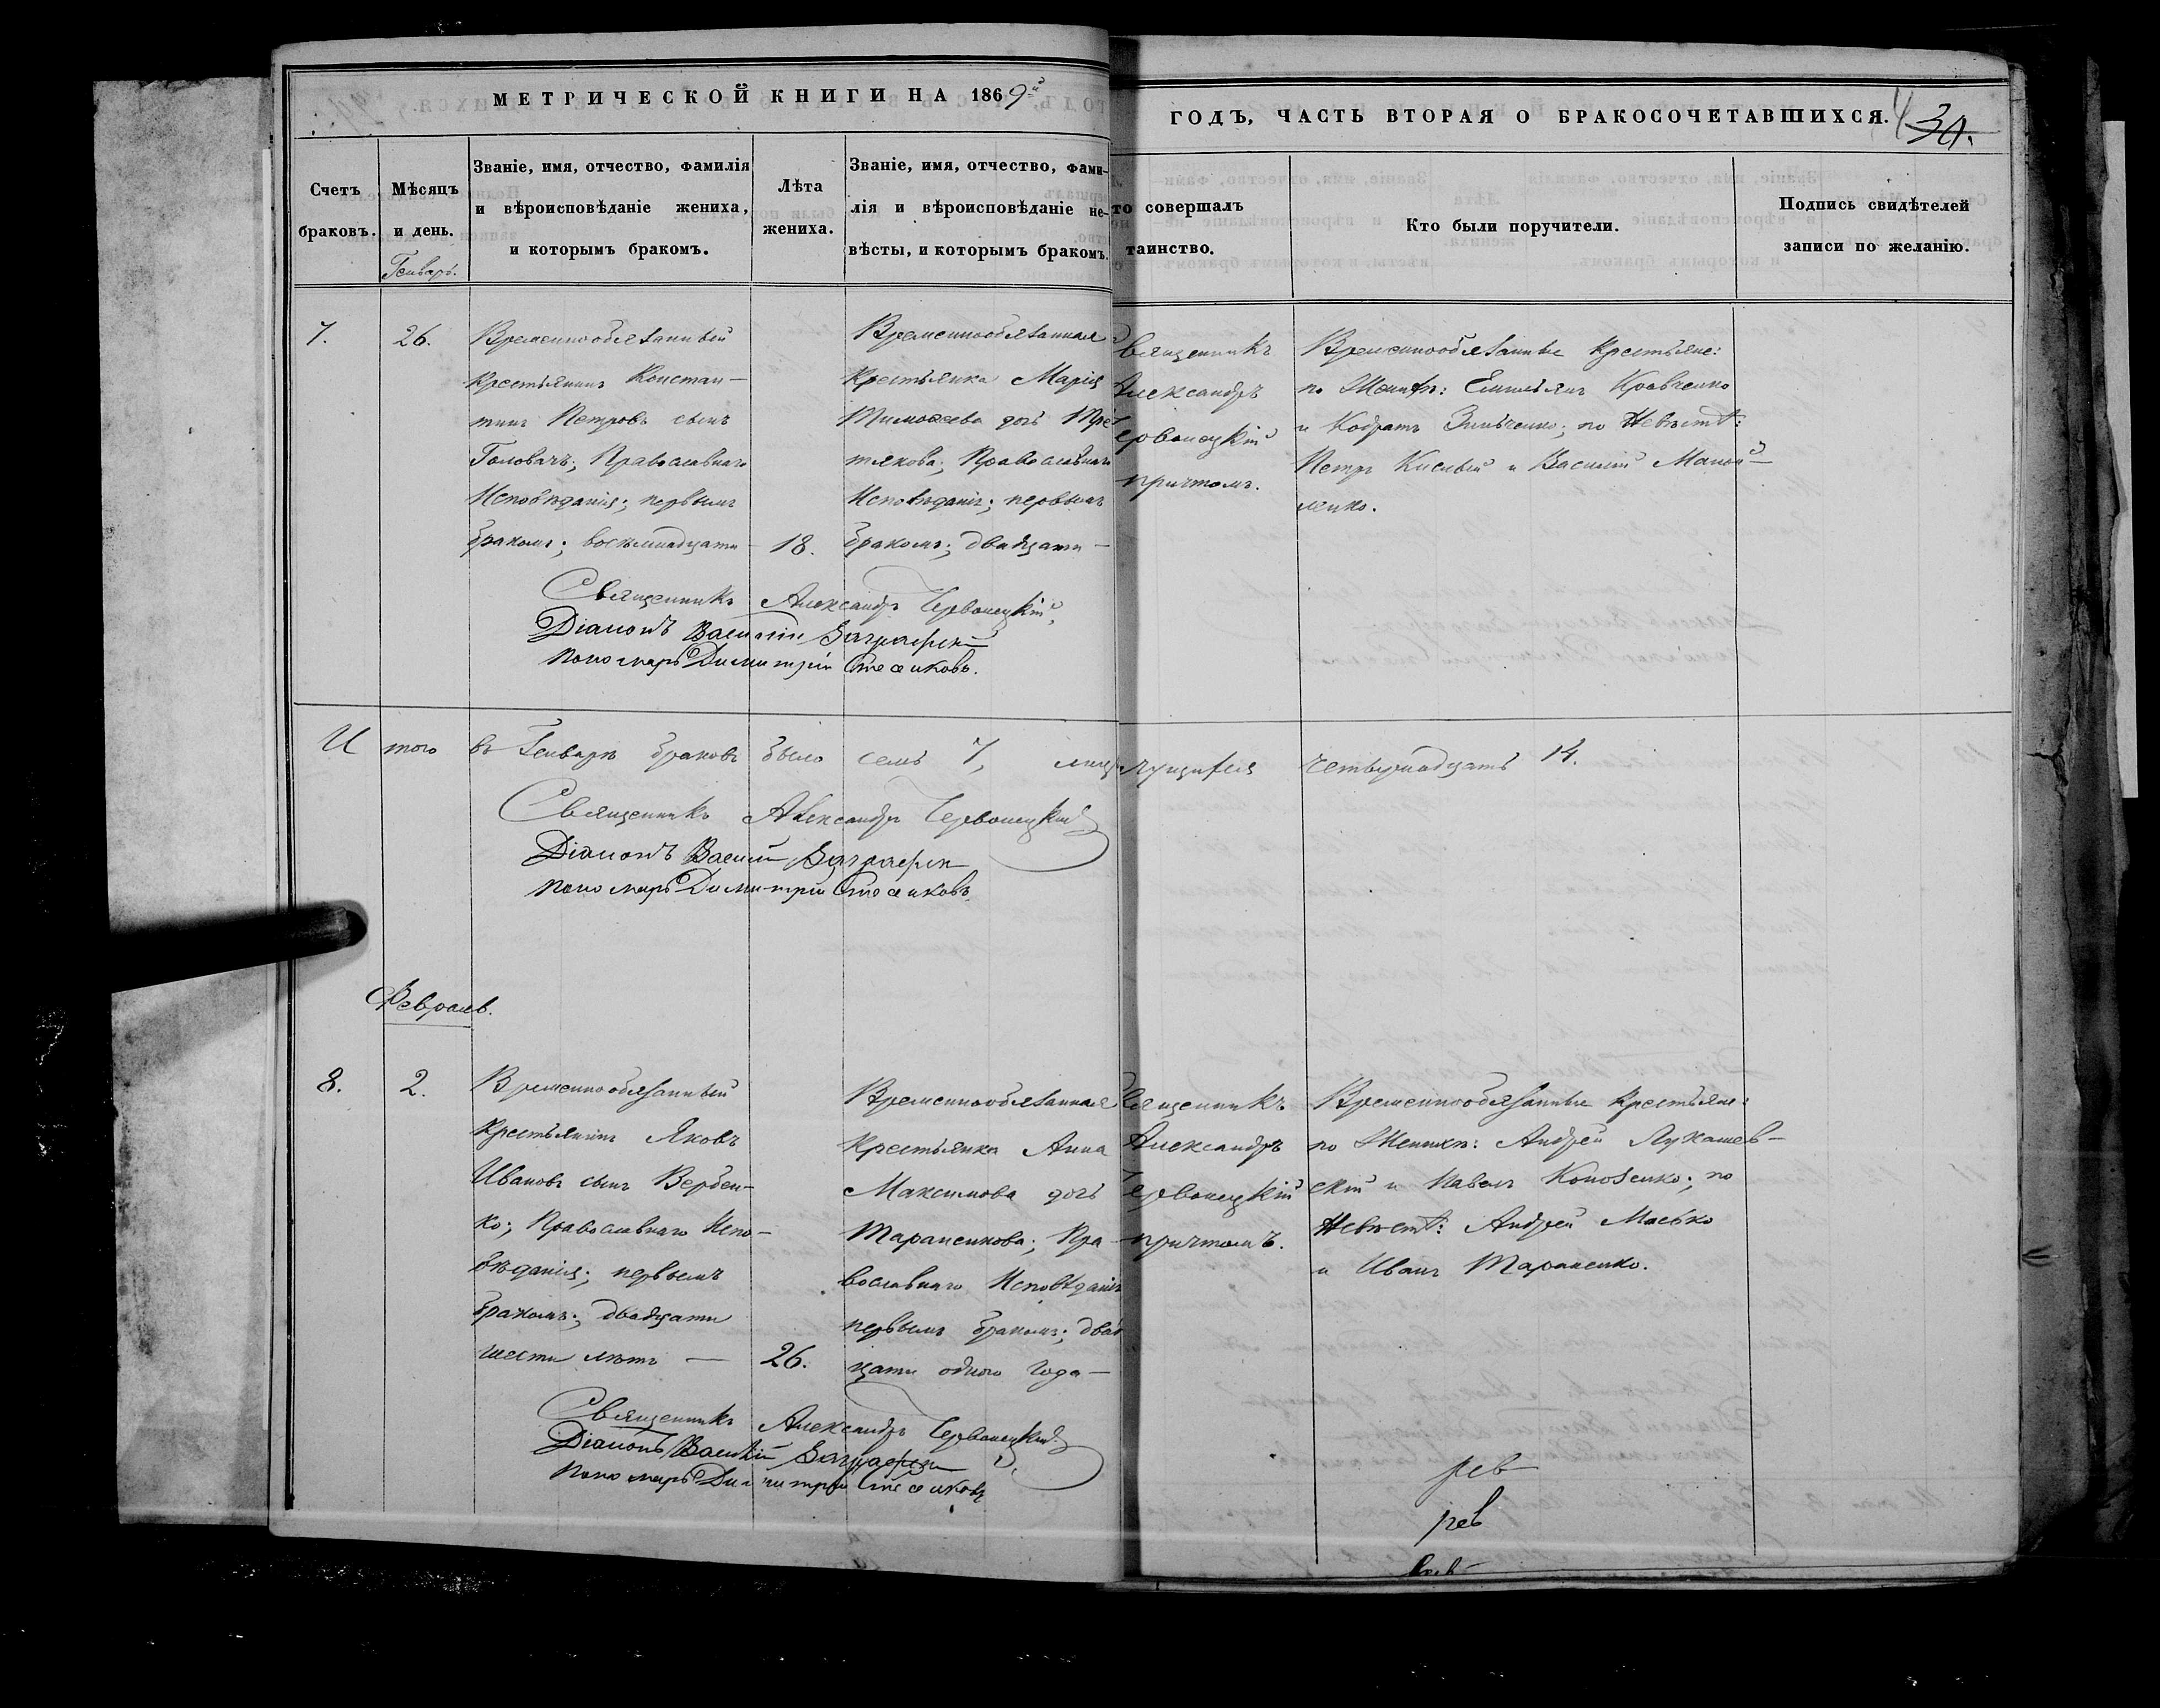 МЕТРИЧЕСКОЙ КНИГИ НА 1869й
ГОДЪ, ЧАСТЬ ВТОРАЯ О БРАКОСОЧЕТАВШИХСЯ.
Счетъ браковъ.
Мѣсяцъ и день.
Генварь.
Званіе, имя, отчество, фамилія
и вѣроисповѣданіе жениха,
и которымъ бракомъ.
Лѣта
жениха.
Званіе, имя, отчество, фами-
лія и вѣроисповѣданіе не-
вѣсты, и которымъ бракомъ.
то совершалъ
таинство.
Кто были поручители.
Подпись свидѣтелей
записи по желанію.
7.
26.
Временнообязанный
Крестьянинъ Констан-
тинъ Петровъ сынъ
Головачъ; Православнаго
Исповѣданія; первымъ
бракомъ; восемнадцати
18.
Временнообязанная
Крестьянка Марія
Тимоѳеева дочь Тре
тякова; Православнаго
Исповѣданія; первымъ
бракомъ; двадцати —
Священникъ
Александръ
Червонецкій
причтомъ.
Временнообязанные Крестьяне:
по Женихѣ: Емельянъ Кравченко
и Кодратъ Зинченко; по Невѣстѣ:
Петръ Кислый и Василій Маной-
ленко.
Священникъ Александръ Червонецкій
Діаконъ Василій
Пономарь Димитрій
Итого въ Генварѣ браковъ было семь 7, лицъ четырнадцать 14.
Священникъ Александръ Червонецкій
Діаконъ Василій
Пономарь Димитрій
Февраль.
8.
2.
Временнообязанный
Крестьянинъ Яковъ
Ивановъ сынъ Вербен-
ко; Православнаго Испо-
вѣданія; первымъ
бракомъ; двадцати
шести лѣтъ —
26.
Временнообязанная
Крестьянка Анна
Максимова дочь
Тараненкова; Пра-
вославнаго Исповѣданія
первымъ бракомъ; двад
цати одного года —
Священникъ
Александръ
Червонецкій
причтомъ.
Временнообязанные Крестьяне:
по Женихѣ: Андрей Лукашев-
скій и Павелъ Конозенко; по
Невѣстѣ: Андрей Масько
и Иванъ Тараненко.
Священникъ Александръ Червонецкій
Діаконъ Василій
Пономарь Димитрій